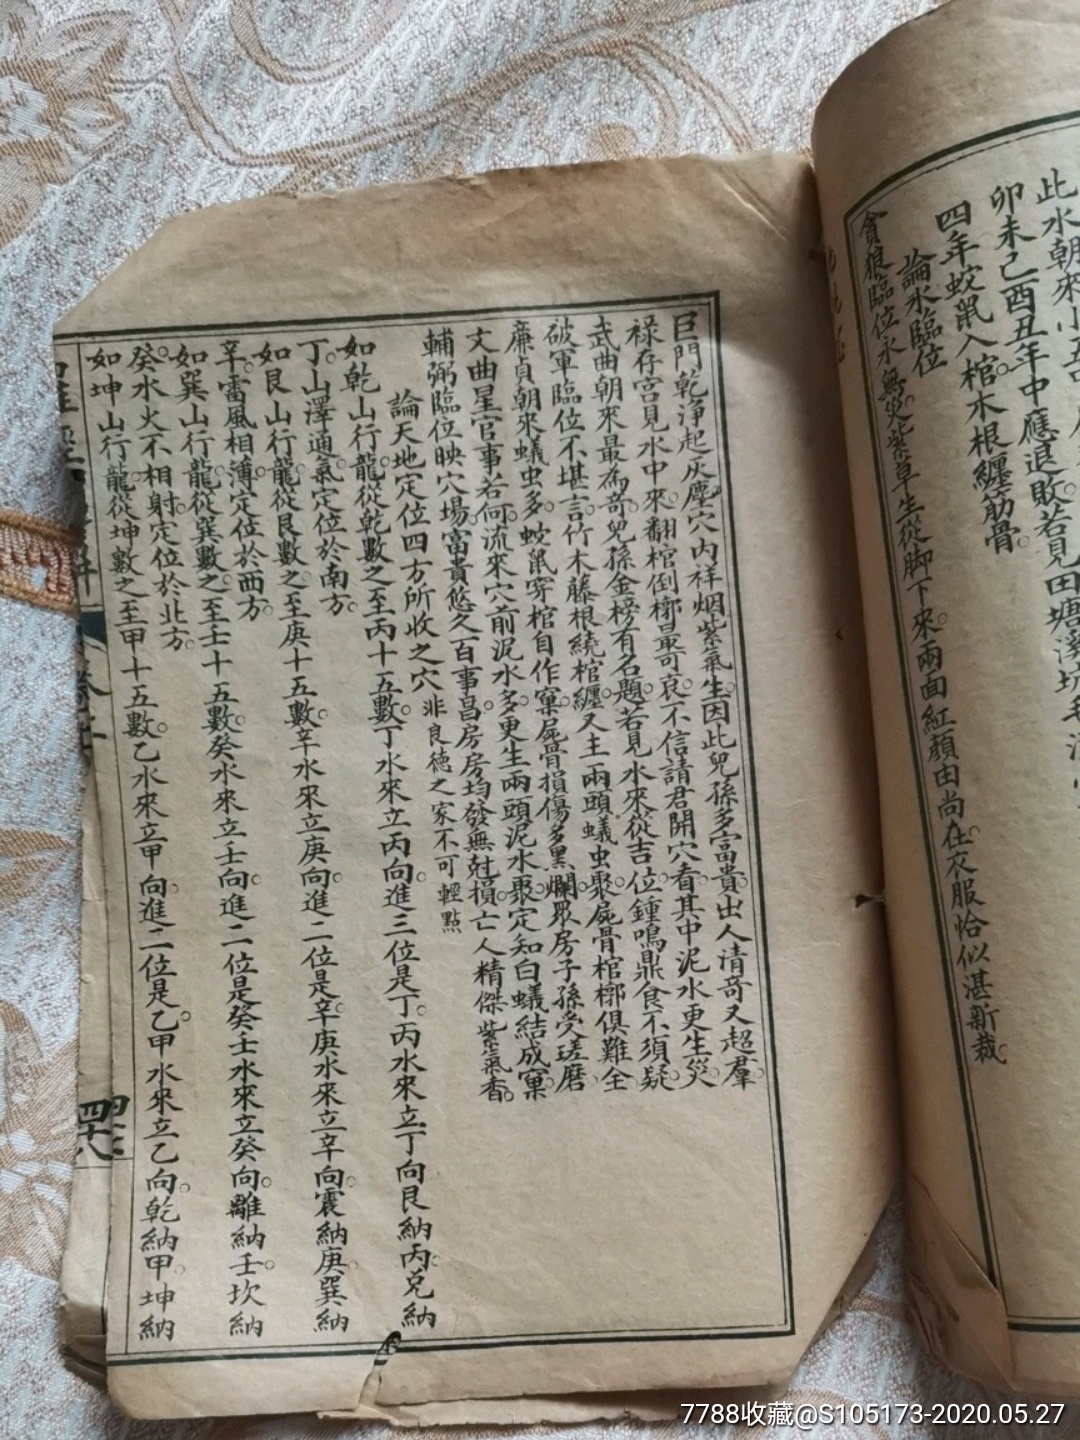 此水朝來小
卯未己酉丑年中應退敗若見田塘溪坑
四年蛟鼠入棺木根纏筋骨
論水臨位
貪狼臨位水無災紫草生從脚下來兩面紅顏由尚在衣服恰似湛新裁
巨門乾淨起灰塵穴內祥烟紫氣生因此兒孫多富貴出人清奇又超羣
祿存宮見水中來翻棺倒槨最可哀不信請君開穴看其中泥水更生災
武曲朝來最為奇兒孫金榜有名題若見水來從吉位鍾鳴鼎食不須疑
破軍臨位不堪言竹木藤根繞棺纏又主兩頭蟻虫聚屍骨棺槨俱難全
廉貞朝來蟻虫多蛟鼠穿棺自作窠屍骨損傷多黑爛眾房子孫受磋磨
文曲星官事若何流來穴前泥水多更生兩頭泥水聚定知白蟻結成窠
輔弼臨位映穴場富貴悠久百事昌房房均發無尅損亡人精傑紫氣香
論天地定位四方所收之穴非良德之家不可輕點
如乾山行龍從乾數之至丙十五數丁水來立丙向進三位是丁丙水來立丁向艮納丙兌納
丁山澤通氣定位於南方
如艮山行龍從艮數之至庚十五數辛水來立庚向進二位是辛庚水來立辛向震納庚巽納
辛雷風相薄定位於西方
如巽山行龍從巽數之至壬十五數癸水來立壬向進二位是癸壬水來立癸向離納壬坎納
癸水火不相射定位於北方
如坤山行龍從坤數之至甲十五數乙水來立甲向進二位是乙甲水來立乙向乾納甲坤納
四十八
7788收藏@S105173-2020.05.27